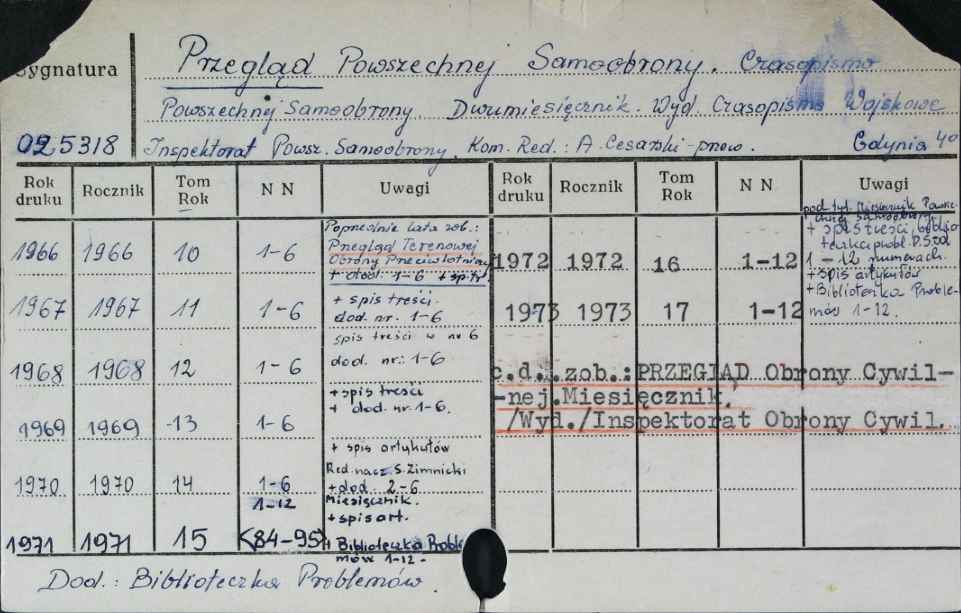 Sygnatura
Przegląd Powszechnej Samoobrony. Czasopismo
Powszechnej Samoobrony. Dwumiesięcznik. Wyd. Czasopisma Wojskowe
025318 Inspektorat Powsz. Samoobrony. Kom. Red.: A. Cesarski-przew. Gdynia 40
Rok druku Rocznik Tom Rok N N Uwagi
Rok druku Rocznik Tom Rok N N Uwagi
1966 1966 10 1-6 Poprzednie lata zob.:
Przegląd Terenowej
Obrony Przeciwlotniczej
+ dod. 1-6 + spis
1967 1967 11 1-6 + spis treści.
dod. nr. 1-6
1968 1968 12 1-6 spis treści w nr 6
dod. nr.: 1-6
1969 1969 13 1-6 + spis treści
+ dod. nr. 1-6.
1970 1970 14 1-6 + spis artykułów
Red. nacz. S. Zimnicki
+ dod. 2-6
1971 1971 15 1-12 (84-95) Miesięcznik.
+ spis art.
+ Biblioteczka Proble
mów 1-12.
1972 1972 16 1-12 pod tyt. Miesięcznik Powsze-
chnej Samoobrony
+ spis treści, biblio
1-12 numerach.
+ spis artykułów
1973 1973 17 1-12 + Biblioteczka Proble-
mów 1-12.
c.d. zob.: PRZEGLĄD Obrony Cywil-
-nej. Miesięcznik.
/Wyd./Inspektorat Obrony Cywil.
Dod.: Biblioteczka Problemów